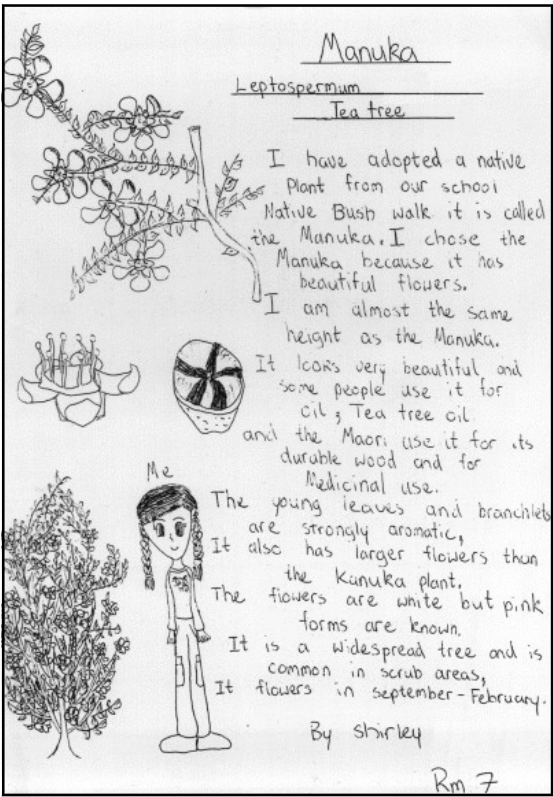 Manuka
Leptospermum
Tea tree
I have adopted a native
Plant from our school
Native Bush walk it is called
the Manuka. I chose the
Manuka because it has
beautiful flowers.
I am almost the same
height as the Manuka.
It looks very beautiful and
some people use it for
oil; Tea tree oil
and the Maori use it for its
durable wood and for
Medicinal use.
Me
The young leaves and branchlets
are strongly aromatic,
It also has larger flowers than
the Kanuka plant.
The flowers are white but pink
forms are known.
It is a widespread tree and is
common in scrub areas,
It flowers in september-February.
By shirley
Rm 7